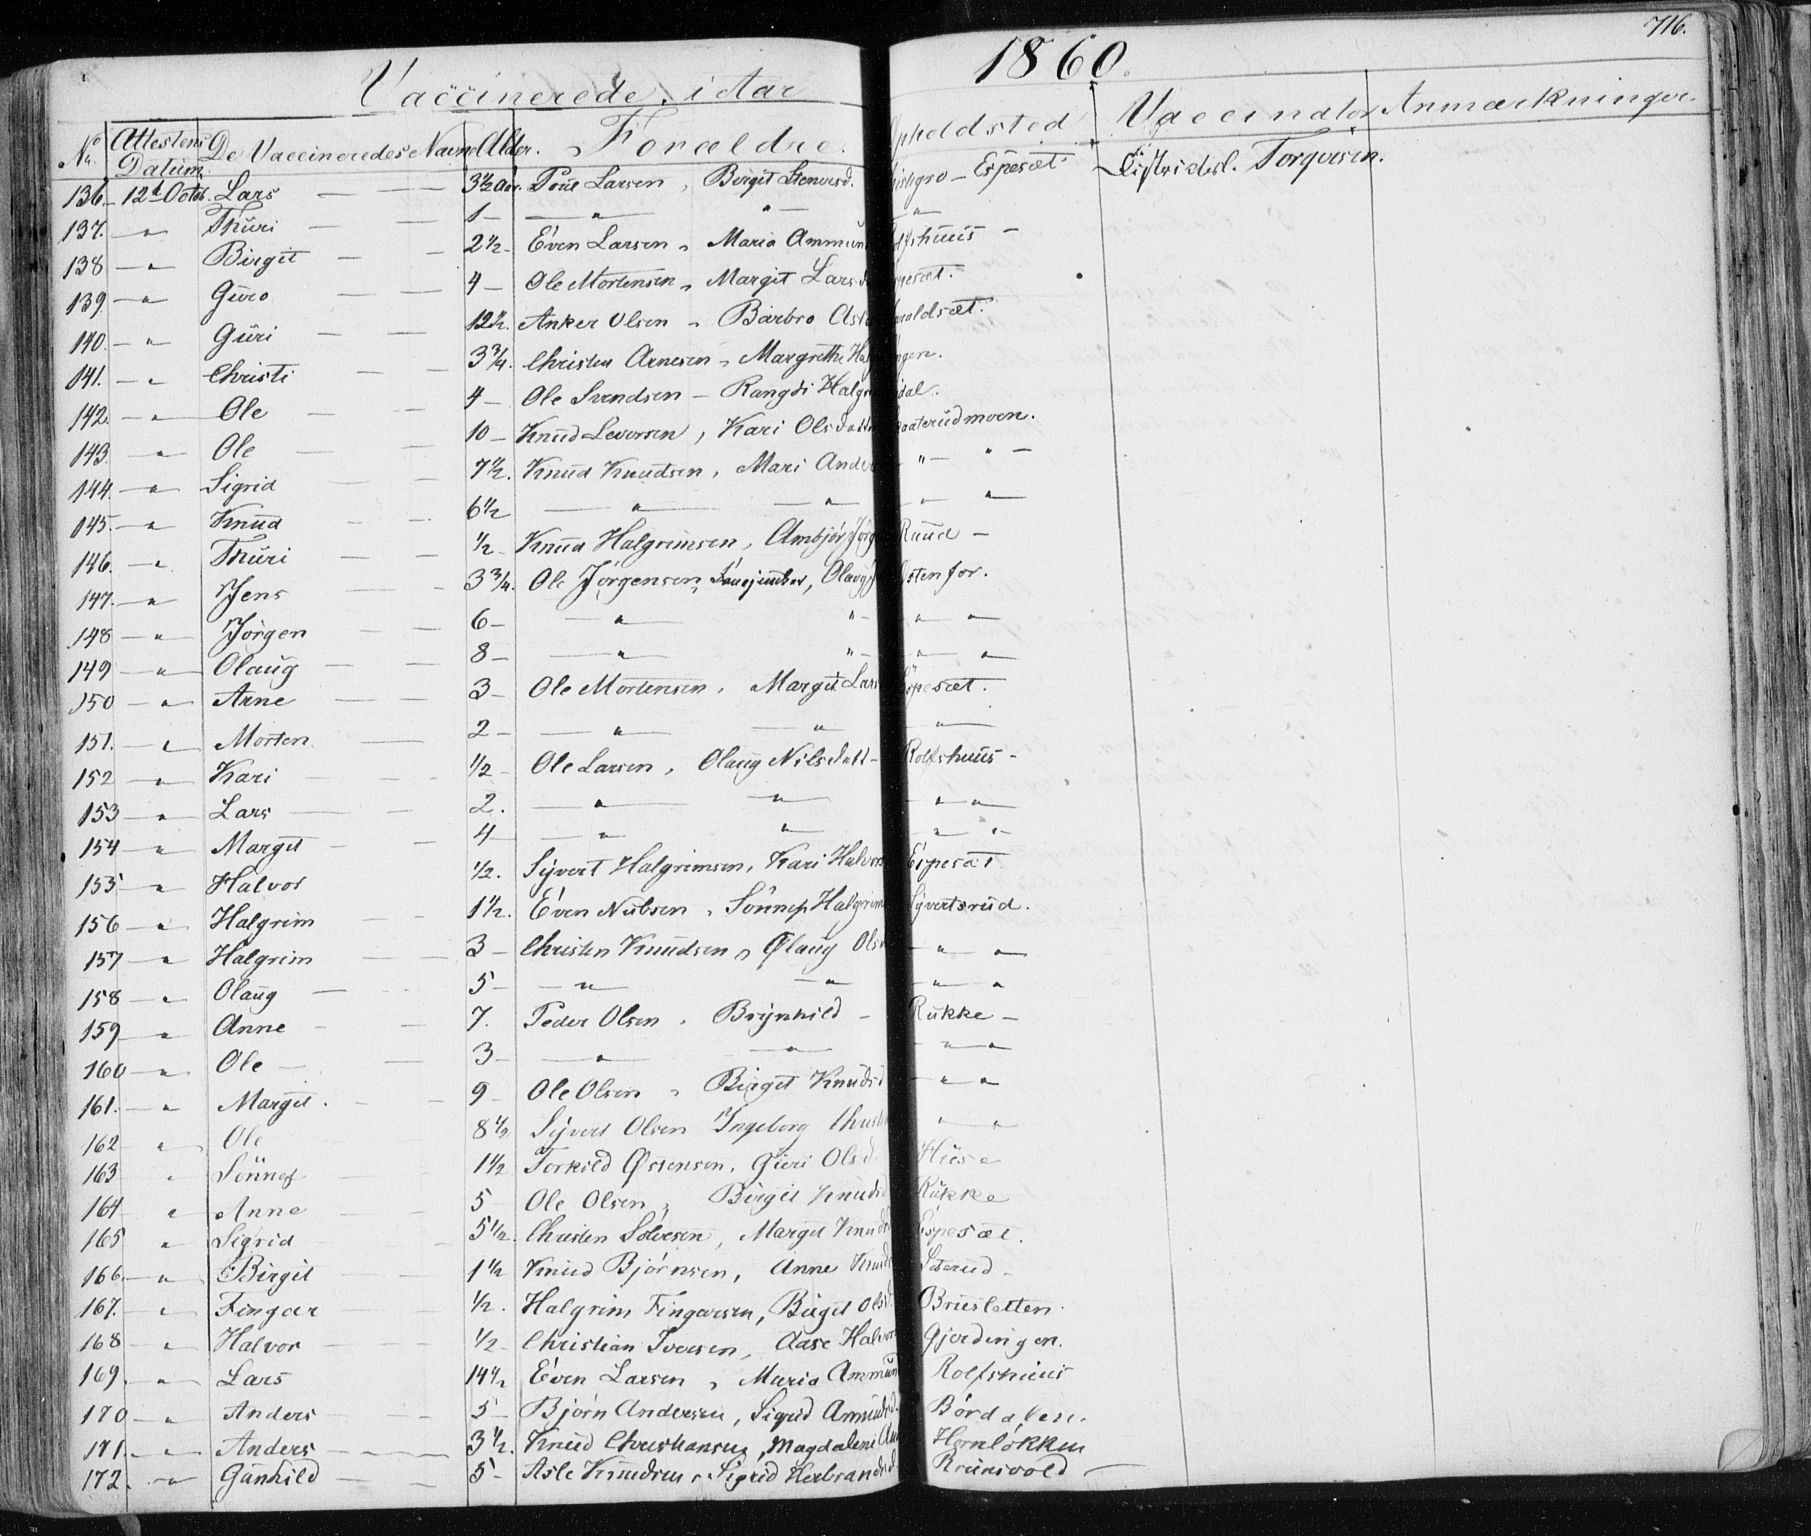 716.
Vaccinerede i Aar 1860.
No. Attestens Datum De Vaccineredes Navne Alder. Forældre. Opholdsted Vaccinator Anmærkninger.
136. 12te Octob. Lars 3 1/2 Aar. Larsen, Birgit Espesæt Districtsl. Torgersen.
137. " Thuri 1 " " "
138 " Birgit 2 1/2 Even Larsen, Maria Ammun Rolfshuus
139 " Guro 4 Ole Mortensen, Margit Larsd Espesæt.
140. " Guri 12 1/2. Anker Olsen, Barbro
141. " Christi 3 3/4. Christen Arnesen, Margrethe
142. " Ole 4 Ole Svendsen, Rangdi Halgr
143. " Ole 10 Knud Leversen, Kari Olsdatter
144. " Sigrid 7 1/2. Knud Knudsen, Mari Ander " "
145. " Knud 6 1/2 " " " "
146. " Thuri 1/2 Knud Halgrimsen, Ambjør Jörg Ruud
147. " Jens 3 3/4. Ole Jörgensen Olaug
148 " Jörgen 6 " " " "
149 " Olaug 8 " " " "
150 " Arne 3 Ole Mortensen, Margit Lars Espesæt.
151. " Morten 2 " " "
152 " Kari 1/2 Ole Larsen, Olaug Nilsdatt Rolfshuus
153 " Lars 2. " " " "
154 " Margit 4 " " " "
155 " Halvor 1/2. Syvert Halgrimsen, Kari Halvors Espesæt
156 " Halgrim 1 1/2. Even Nubsen, Sönnef Halgrim Syvertsrud.
157 " Halgrim 3 Christen Knudsen, Olaug Ols " "
158 " Olaug 5 " " " "
159 " Anne 7. Peder Olsen, Brynhild Rukke
160 " Ole 3 " " " "
161. " Margit. 9 Ole Olsen, Birgit Knudsd " "
162 " Ole 8 1/2 Syvert Olsen Ingeborg " "
163 " Sönnef 1 1/2 Torkild Østensen, Guri Olsd. Huse
164 " Anne 5 Ole Olsen, Birgit Knudsd Rukke
165 " Sigrid 5 1/2. Christen Margit Knuds Espesæt.
166. " Birgit 1 1/2 Knud Björnsen, Anne Knuds Säterud
167. " Fingar 1/2. Halgrim Fingarsen, Birgit Olsd. Brusletten.
168 " Halvor 1/2 Christian Iversen, Aase Halvor Gjerdingen.
169. " Lars 14 1/2 Even Larsen, Maria Ammun Rolfshuus
170 " Anders 5 Björn Andersen, Sigrid Amundsd. Bórdalen.
171. " Anders 3 1/2. Knud Christiansen, Magdalene Hernlökken
172. " Gunhild 5 Asle Knudsen, Sigrid Herbrandsd. Brunsvold